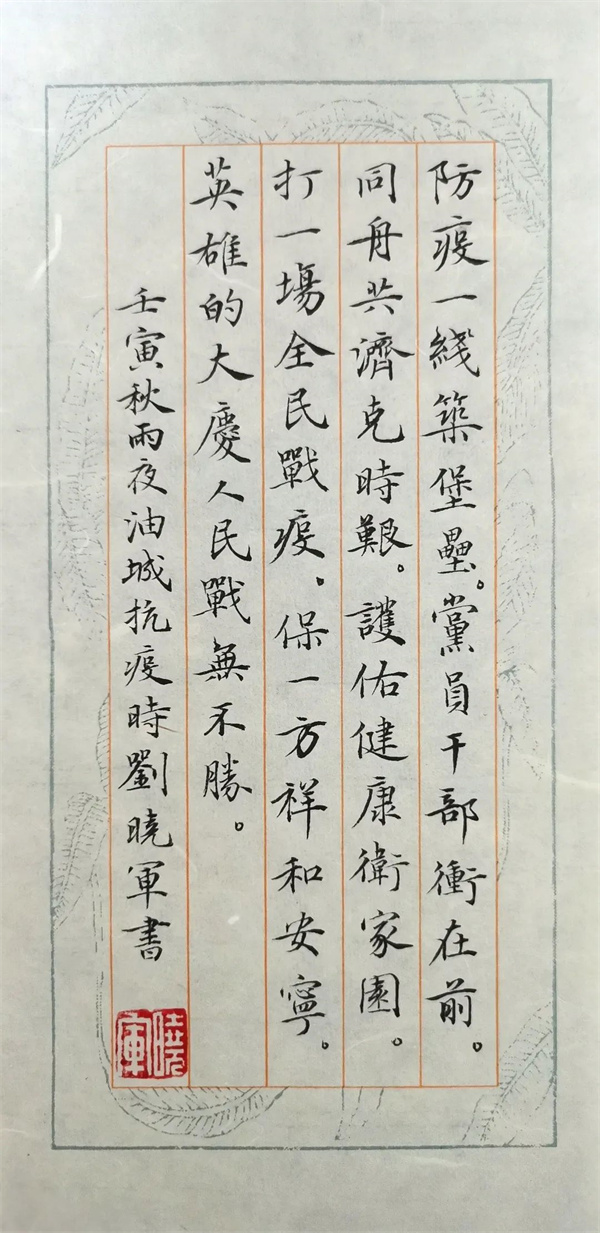 防疫一綫築堡壘。黨員干部衝在前。
同舟共濟克時艱。護佑健康衛家園。
打一場全民戰疫、保一方祥和安寧。
英雄的大慶人民戰無不勝。
壬寅秋雨夜油城抗疫時劉曉軍書
曉軍